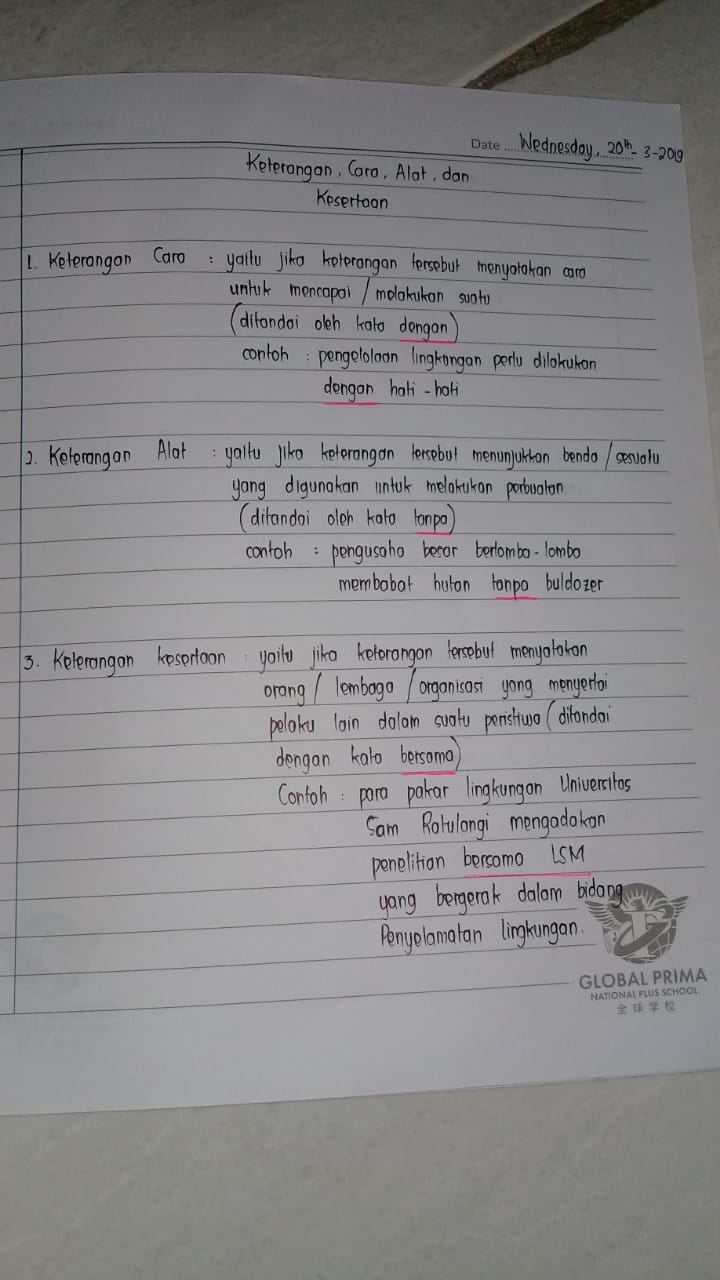 Date Wednesday, 20th - 3 - 2019
Keterangan, Cara, Alat, dan
Kesertaan
1. Keterangan Cara : yaitu jika keterangan tersebut menyatakan cara
untuk mencapai / melakukan suatu
(ditandai oleh kata dengan)
contoh : pengelolaan lingkungan perlu dilakukan
dengan hati - hati
2. Keterangan Alat : yaitu jika keterangan tersebut menunjukkan benda / sesuatu
yang digunakan untuk melakukan perbuatan
(ditandai oleh kata tanpa)
contoh : pengusaha besar berlomba - lomba
membabat hutan tanpa buldozer
3. Keterangan kesertaan : yaitu jika keterangan tersebut menyatakan
orang / lembaga / organisasi yang menyertai
pelaku lain dalam suatu peristiwa (ditandai
dengan kata bersama)
Contoh : para pakar lingkungan Universitas
Sam Ratulangi mengadakan
penelitian bersama LSM
yang bergerak dalam bidang
Penyelamatan lingkungan.
GLOBAL PRIMA
NATIONAL PLUS SCHOOL
全球学校